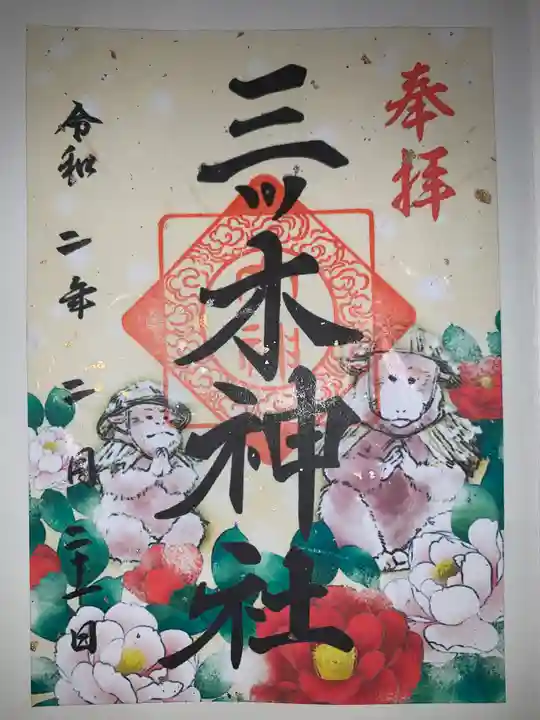 奉拝
三ッ木神社
令和二年二月二十一日